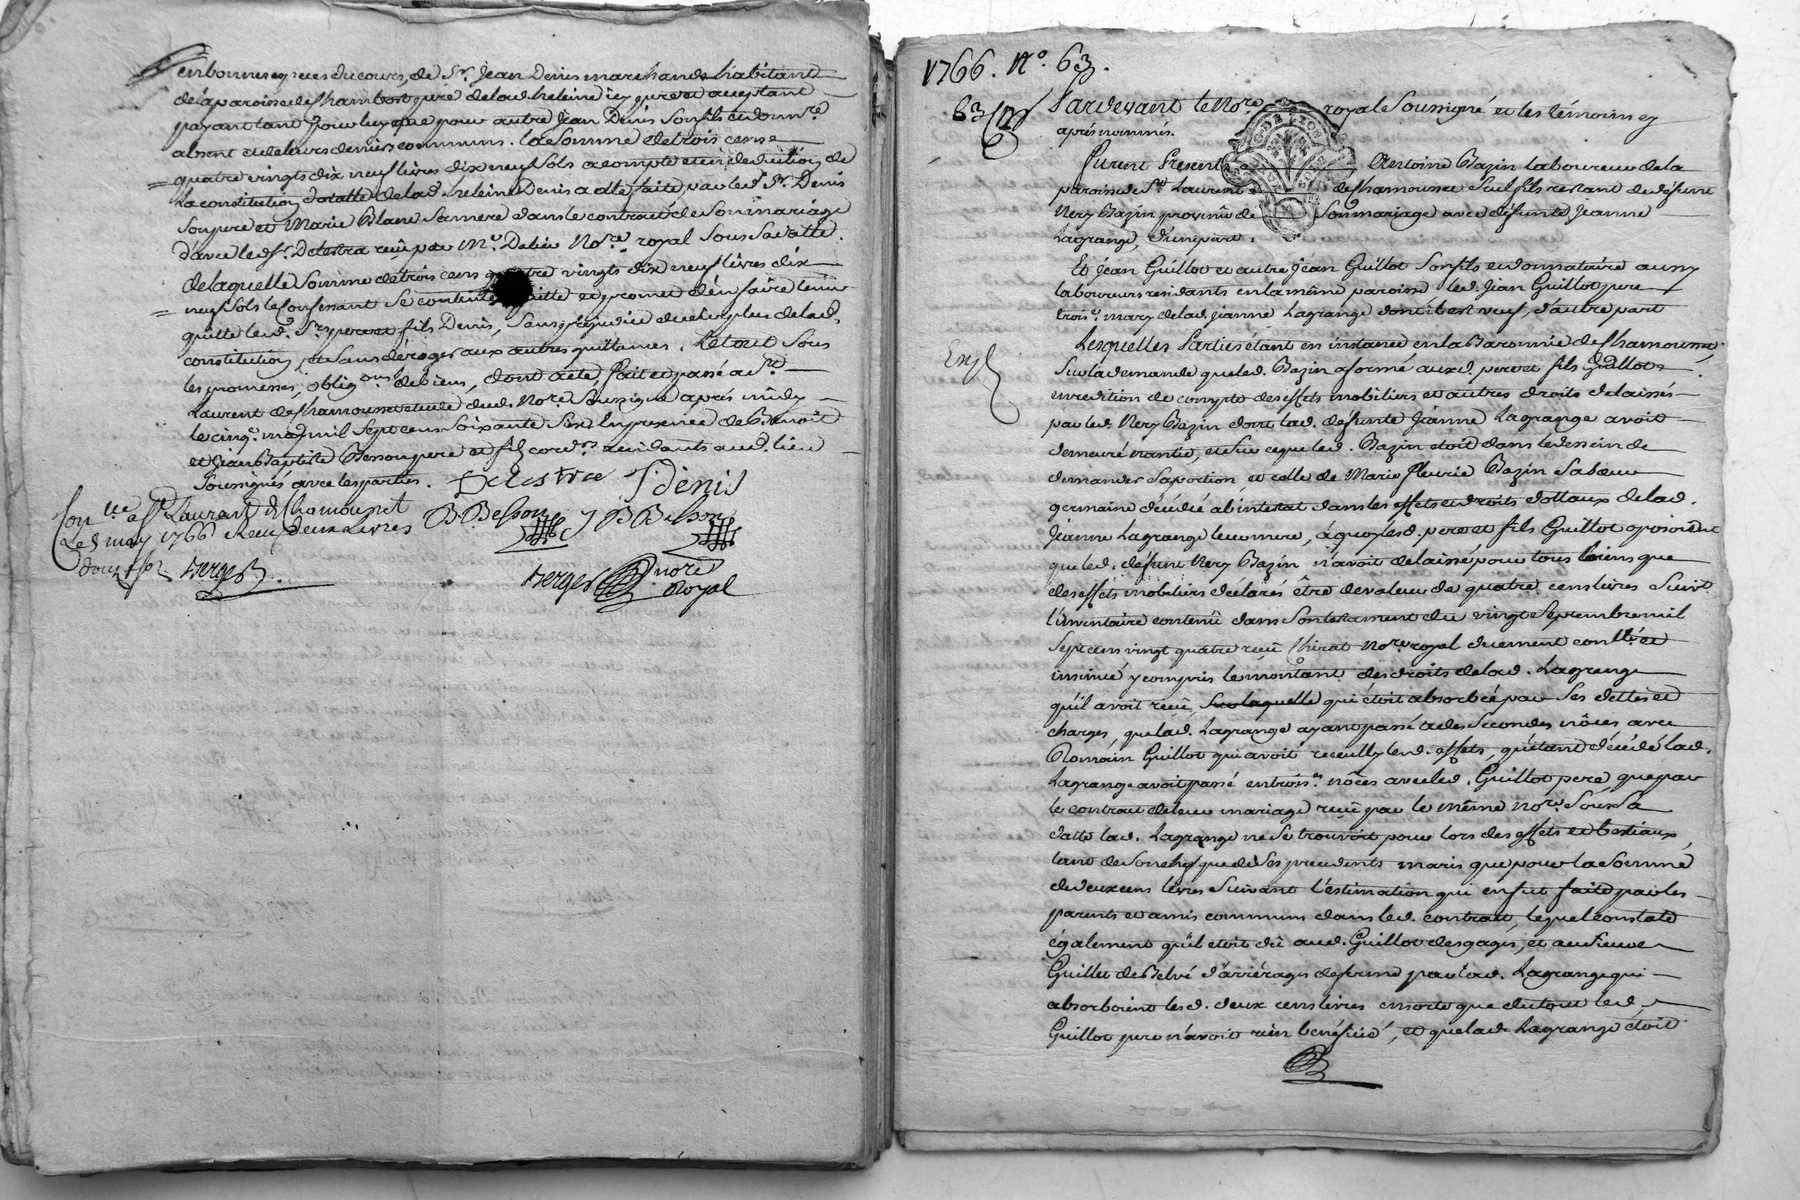 en bonnes especes du cours, de Sr. Jean Denis marchand habitant
de la paroisse de Chambost pere de lad. heleine icy present acceptant
payant tant pour luy que pour autre Jean Denis son fils et donnre
absent et de leurs deniers communs. la somme de trois cens
quatre vingts dix neuf livres dix neuf sols a compte et en deduction de
la constitution dotalle de lad. heleine Denis a elle faite par led. Sr. Denis
son pere et Marie Blanc sa mere dans le contract de son mariage
d'avec led. Sr. Delestra reçu par Me. Dalier Nore. royal sous sa datte.
de laquelle somme de trois cens quatre vingts dix neuf livres dix
neuf sols le confessant se contente quitte et promet d'en faire tenir
quitte led. Srs. pere et fils Denis, sans prejudice du surplus de lad.
constitution, et sans déroger aux autres quittances. Le tout sous
les promesses, obligons. de biens, dont acte, fait et passé a St.
Laurent de Chamousset etude dud. Nore. soussigné aprés midy
le cinq. may mil sept cens soixante six En presence de Benoit
et Jean Baptiste Besson pere et fils cordrs. residants aud. lieu
soussignés avec les parties. Delestra J denis
B Besson J B Besson
Conlle. a St. Laurent de Chamousset
Le 8 may 1766 Reçu deux Livres
douze sols Berger
Berger nore Royal
1766. No. 63.
63
Pardevant le Nore. royal Soussigné et les témoins cy
aprés nommés.
Furent Presents Antoine Bazin laboureur de la
paroisse de St. Laurent de Chamousset seul fils restant de défunt
Nery Bazin provenû de son mariage avec défunte Jeanne
Lagrange, d'une part.
Et Jean Guillot et autre Jean Guillot son fils et donnataire aussy
laboureurs residants en la même paroisse led. Jean Guillot pere
trois. mary de lad. Jeanne Lagrange dont il est veuf, d'autre part
Lesquelles Parties étant en instance en la Baronnie de Chamousset
Exp
sur la demande que led. Bazin a formé auxd. pere et fils Guillot
en redition de compte des effets mobiliers et autres droits delaissés
par led. Nery Bazin dont lad. défunte Jeanne Lagrange avoit
demeuré nantie, et sur ce que led. Bazin etoit dans le dessein de
demander sa portion et celle de Marie Fleurie Bazin sa sœur
germaine décédée ab intestat dans les effets et droits dottaux de lad.
Jeanne Lagrange leur mere, à quoy led. pere et fils Guillot oposoient
que led. défunt Nery Bazin n'avoit delaissé pour tous biens que
des effets mobiliers déclarés être de valeur de quatre cens livres suivt.
l'inventaire contenû dans son testament du vingt septembre mil
sept cens vingt quatre reçû Chirat Nore. royal duement conllé. et
insinué y compris le montant des droits de lad. Lagrange
qu'il avoit reçû, sur laquelle qui étoit absorbée par ses dettes et
charges, que lad. Lagrange ayant passé a des secondes nôces avec
Romain Guillot qui avoit recueilly lesd. effets, qu'étant décédé lad.
Lagrange avoit passé en troises. nôces avec led. Guillot pere que par
le contract de leur mariage reçû par le même Nore. sous sa
datte lad. Lagrange ne se trouvoit pour lors des effets et bestiaux,
tant de son chef que de ses précédents maris que pour la somme
de deux cens livres suivant l'estimation qui en fut faite par les
parents et amis communs dans led. contract, lequel constate
également qu'il etoit dû aud. Guillot des gages, et au sieur
Guillet de Belvé d'arriérages de ferme par lad. Lagrange qui
absorboient lesd. deux cens livres en sorte que du tout led.
Guillot pere n'avoit rien bénéficié, et que lad. Lagrange étoit